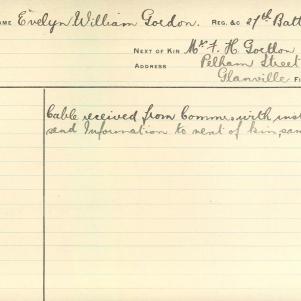 AME Evelyn William Gordon. REG. &C 27th Batt
NEXT OF KIN Mr F. H. Gordon
ADDRESS Pelham Street
Glanville
Cable received from Commrs. with inst
and Information to next of kin, sam